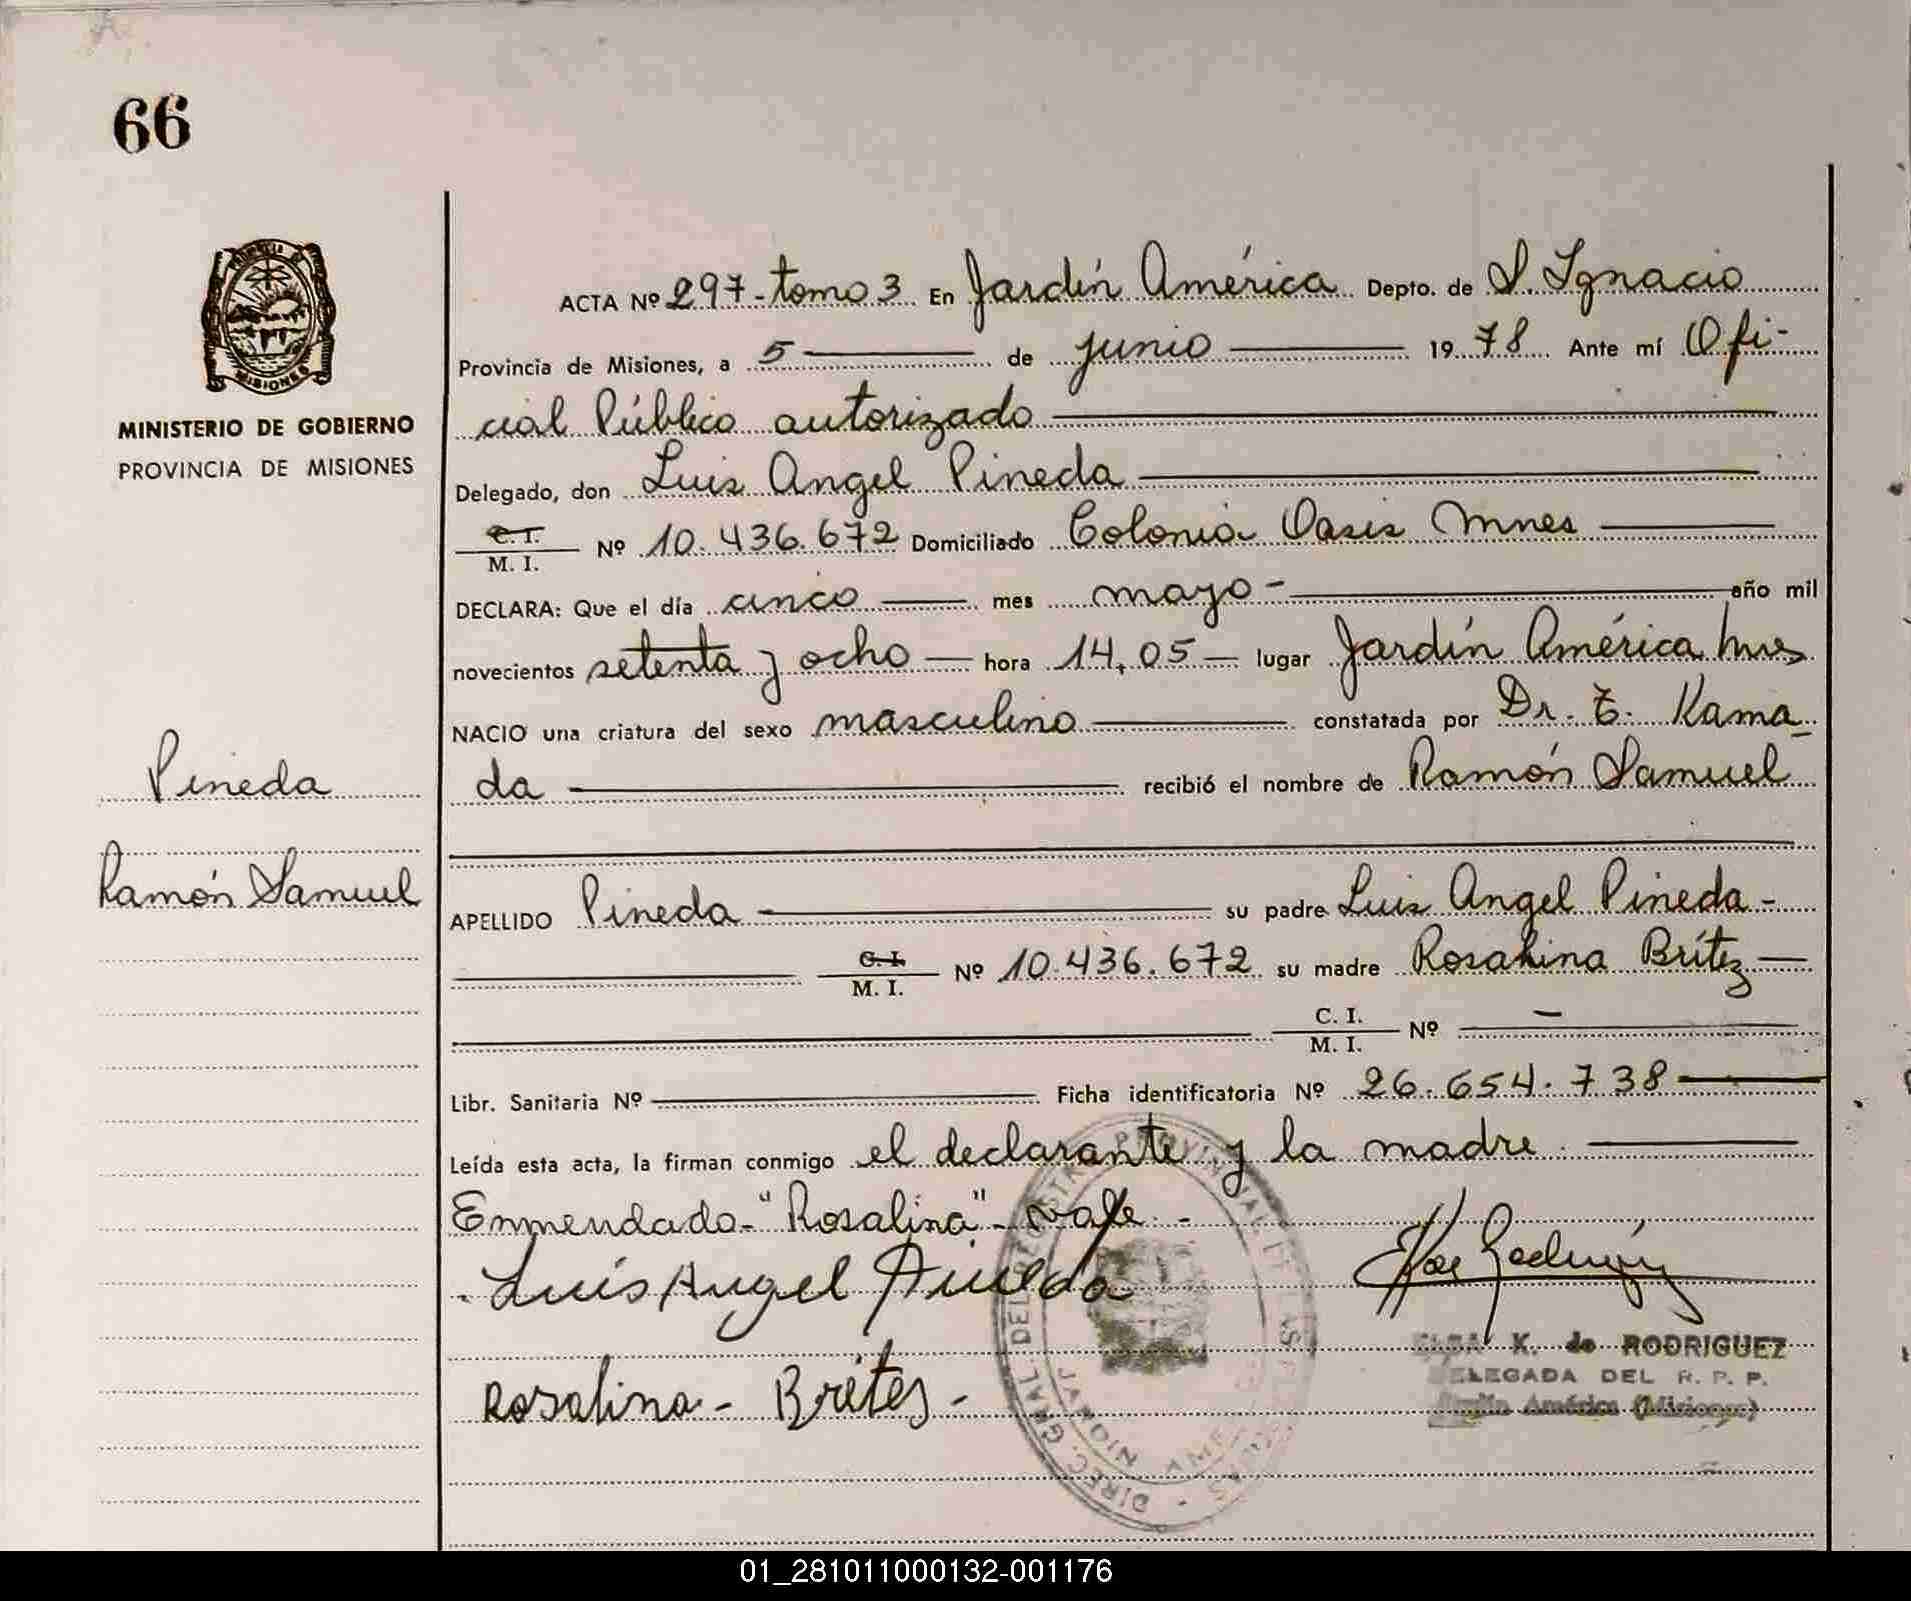 66
MINISTERIO DE GOBIERNO
PROVINCIA DE MISIONES
ACTA Nº 297-tomo 3 En Jardín América Depto. de S. Ignacio
Provincia de Misiones, a 5 de junio 1978 Ante mí Ofi-
cial Público autorizado
Delegado, don Luis Angel Pineda
C. I.
M. I. Nº 10.436.672 Domiciliado Colonia Oasis Mnes
DECLARA: Que el día cinco mes mayo - año mil
novecientos setenta y ocho hora 14,05 lugar Jardín América Mnes
NACIO una criatura del sexo masculino constatada por Dr. T. Kama-
da recibió el nombre de Ramón Samuel
Pineda
Ramón Samuel
APELLIDO Pineda su padre Luis Angel Pineda -
C. I.
M. I. Nº 10.436.672 su madre Rosalina Brítez
C. I.
M. I. Nº -
Libr. Sanitaria Nº Ficha identificatoria Nº 26.654.738
Leída esta acta, la firman conmigo el declarante y la madre
Enmendado-"Rosalina"- vale -
Luis Angel Pineda
Rosalina - Brites -
K. de RODRIGUEZ
DELEGADA DEL R. P. P.
Jardín América (Misiones)
DIREC. GRAL DEL REGISTRO PROVINCIAL DE LAS PERSONAS
JARDIN AME
MISIONES
01_281011000132-001176